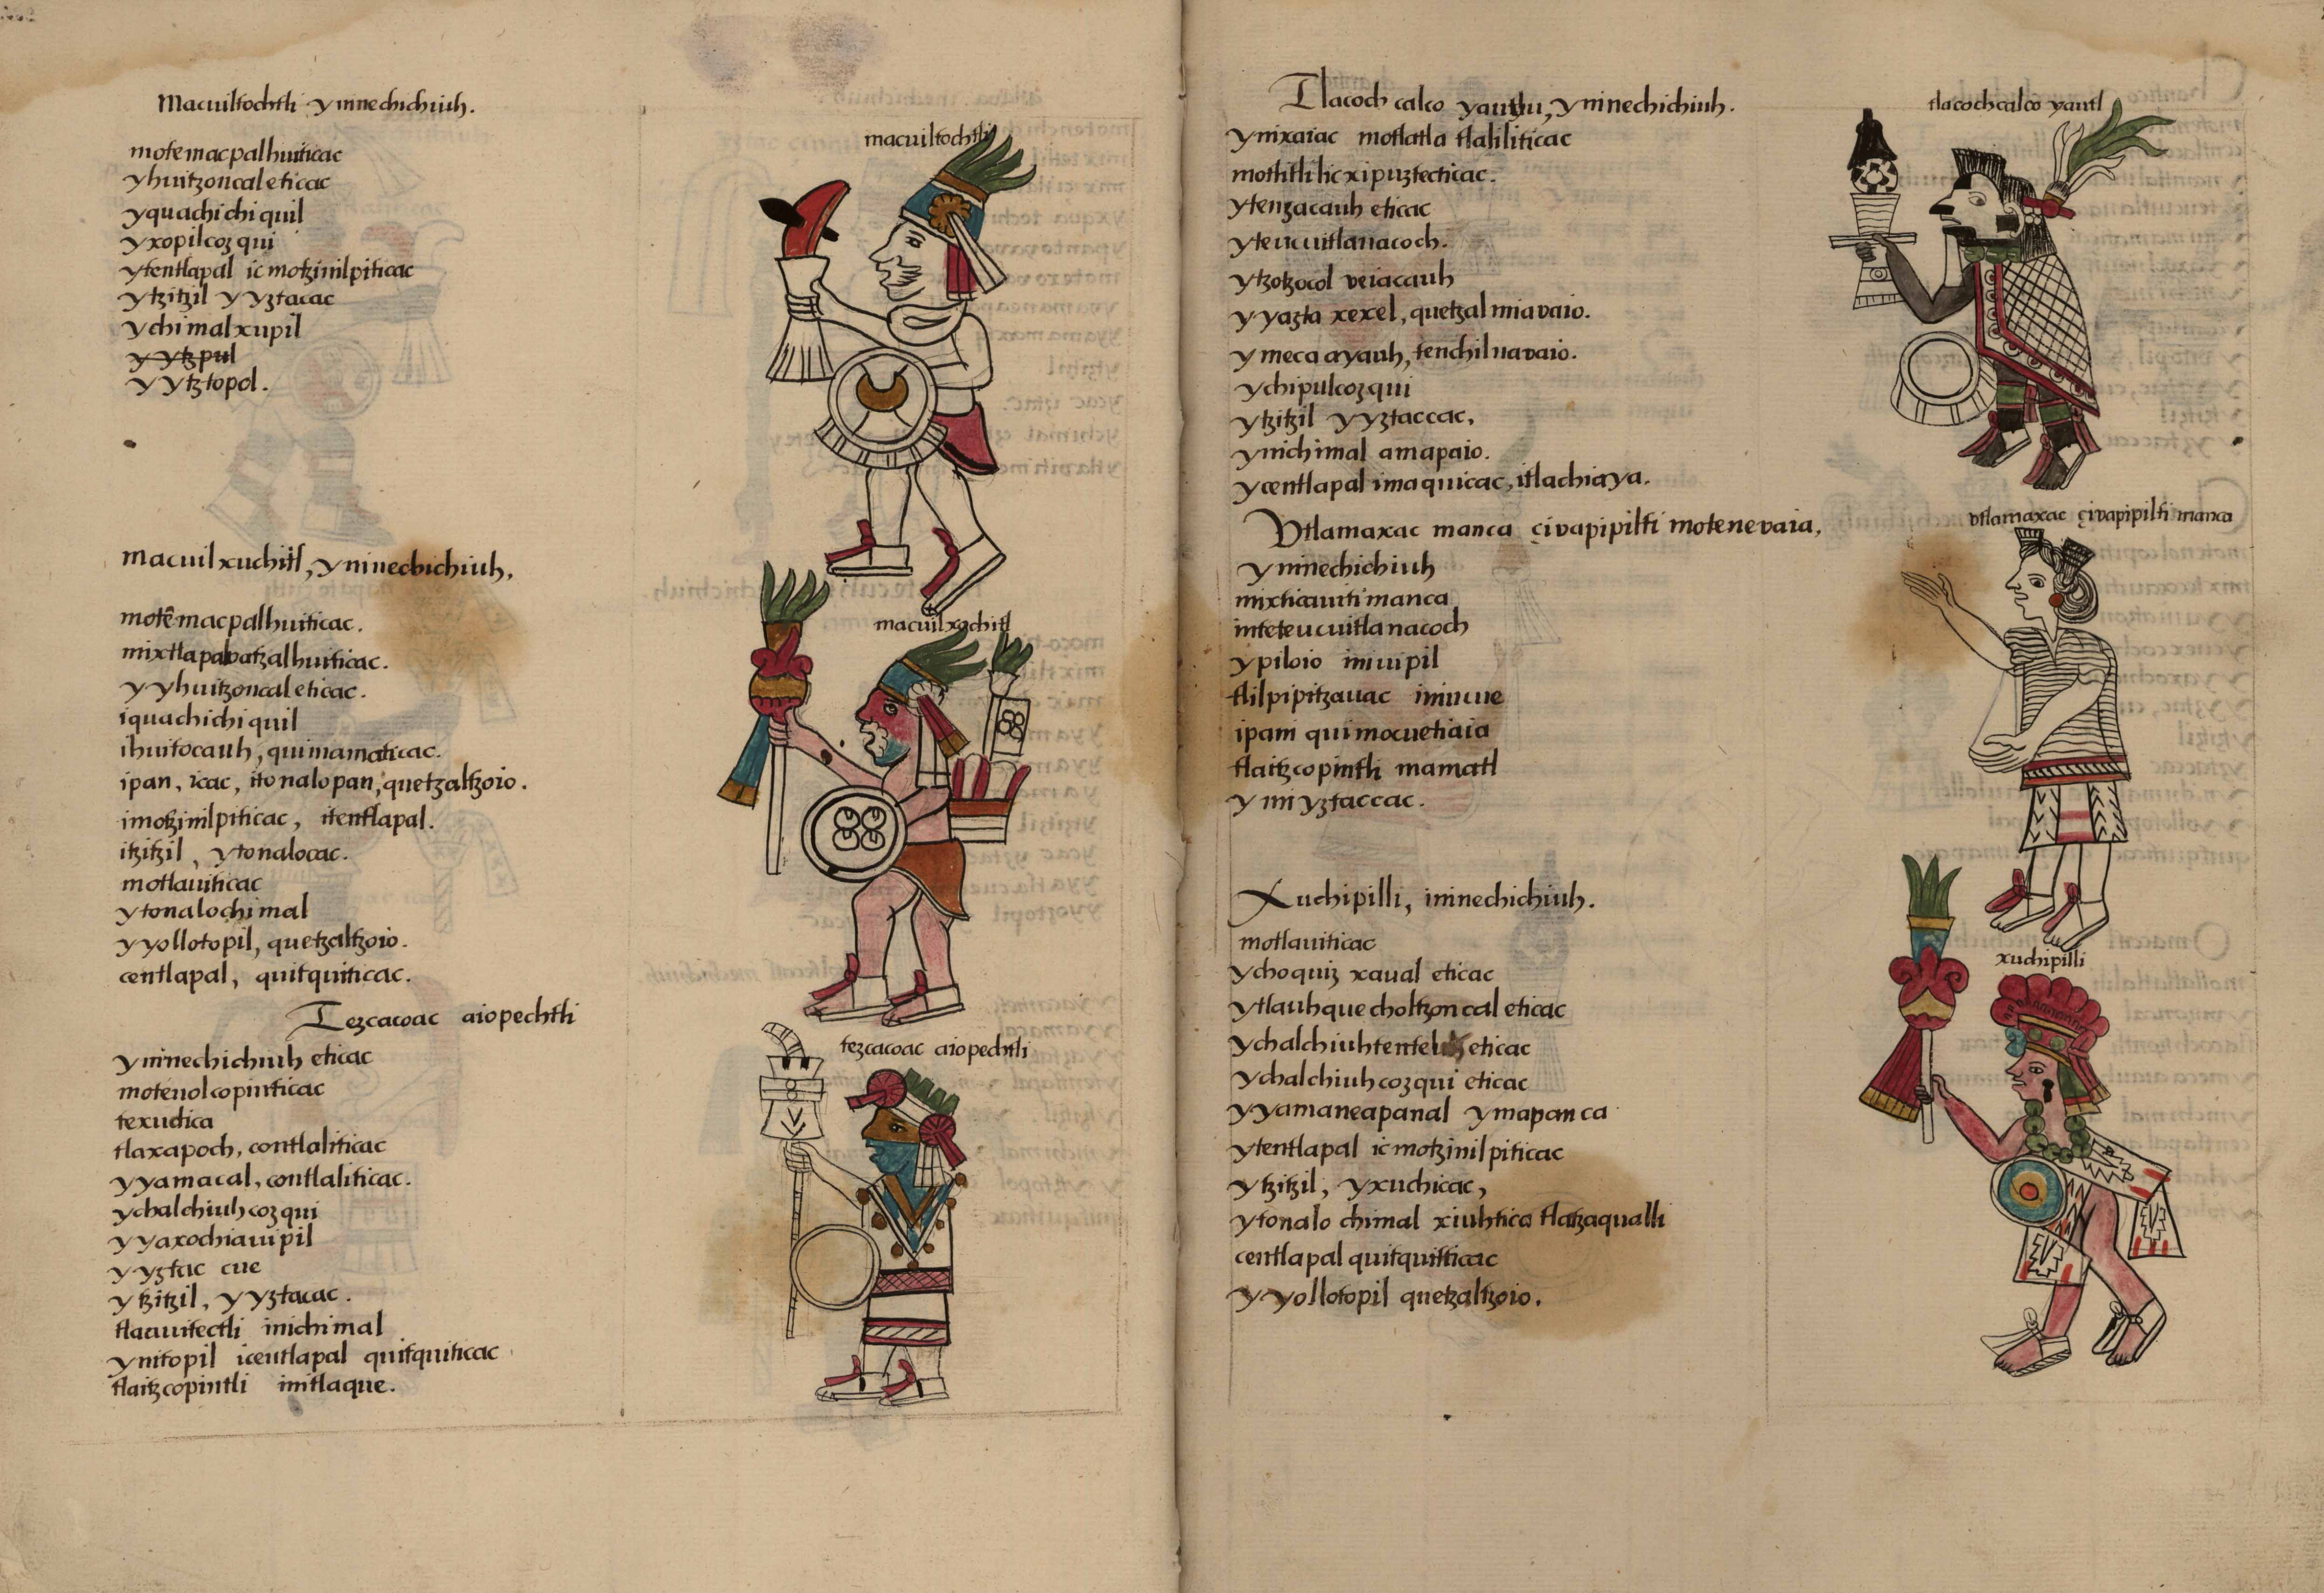 Macuiltochtli yninechichiuh.
motemacpalhuiticac
yhuitzoncal eticac
yquachichiquil
yxopilcozqui
ytentlapal ic motzinilpiticac
ytzitzil y yztacac
ychimalxupil
y ytzpul
y ytztopol.
macuiltochtli
macuilxuchitl, yninechichiuh,
motēmacpalhuiticac.
mixtlapalvatzalhuiticac.
y yhuitzoncal eticac.
iquachichiquil
ihuitocauh, quimamaticac.
ipan, icac, itonalopan, quetzaltzoio.
imotzinilpiticac, itentlapal.
itzitzil, ytonalocac.
motlauiticac
ytonalochimal
y yollotopil, quetzaltzoio.
centlapal, quitquiticac.
macuilxochitl
Tezcacoac aiopechtli
yninechichiuh eticac
motenolcopinticac
texuctica
tlaxapoch, contlaliticac
y yamacal, contlaliticac.
ychalchiuhcozqui
y yaxochiauipil
y yztac cue
ytzitzil, y yztacac.
tlacuitectli inichimal
ynitopil icentlapal quitquiticac
tlaitzcopintli initlaque.
tezcacoac aiopechtli
Tlacochcalco yautl, yninechichiuh.
ynixaiac motlatlatlaliliticac
motlitlilicxipuztecticac.
ytenzacauh eticac
yteucuitlanacoch.
ytzotzocol veiacauh
y yazta xexel, quetzalmiavaio.
ymeca ayauh, tenchilnavaio.
ychipulcozqui
ytzitzil y yztaccac,
ynichimal amapaio.
ycentlapal imaquicac, itlachiaya.
tlacochcalco yautl
Vtlamaxac manca çivapipilti motenevaia,
yninechichiuh
mixticauiti manca
inteteucuitlanacoch
ypiloio iniuipil
tlilpipitzauac iniucue
ipani quimocuetiaia
tlaitzcopintli mamatl
yniyztaccac.
vtlamaxac çivapipilti manca
Xuchipilli, ininechichiuh.
motlauiticac
ychoquiz xaual eticac
ytlauhquecholtzoncal eticac
eticac
ychalchiuhcozqui eticac
y yamaneapanal ymapanca
ytentlapal ic motzinilpiticac
ytzitzil, yxuchicac,
ytonalo chimal xiuhtica tlatzaqualli
centlapal quitquitticac
y yollotopil quetzaltzoio.
xuchipilli